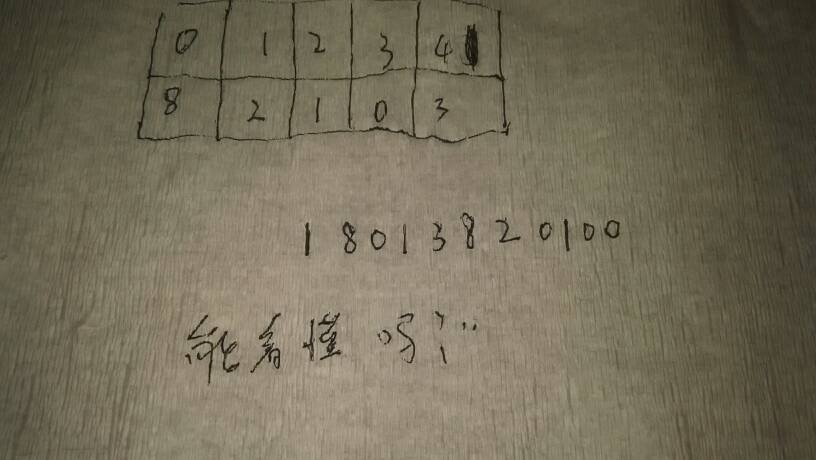 0 1 2 3 4
8 2 1 0 3
18013820100
能看懂吗